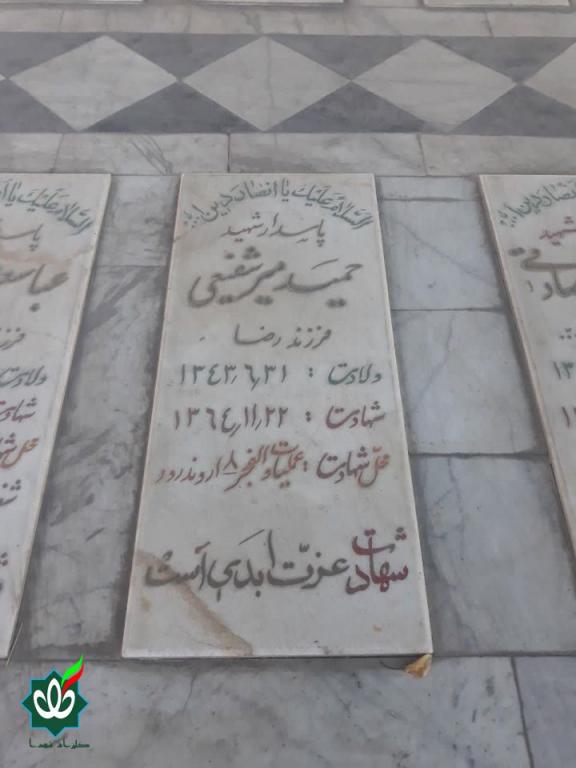 السلام علیک یا انصار دین الله
پاسدار شهید
حمید میر شفیعی
فرزند رضا
ولادت : ۱۳۴۳٫۶٫۳۱
شهادت : ۱۳۶۴٫۱۱٫۲۲
محل شهادت : عملیات والفجر ۸ اروندرود
شهادت عزت ابدی است
السلام علیک یا
پاسدار
عباس
فرزند
ولادت
شهادت
محل
دین الله
شهید
۱۳
۱۳
گلزار شهدا